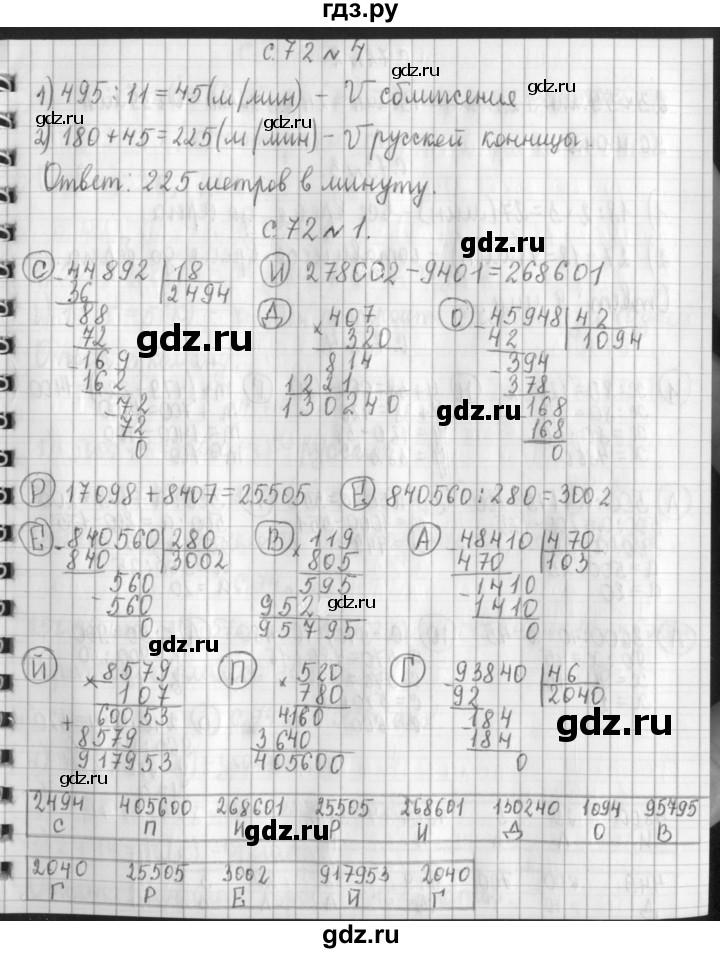 гдз.ру
с. 72 № 4
gdz.ru
1) 495 : 11 = 45 (м/мин) – V сближения
gdz.ru
2) 180 + 45 = 225 (м/мин) – V русской конницы
gdz.ru
Ответ: 225 метров в минуту.
с. 72 № 1.
gdz.ru
С 44892 18 И 278002 – 9401 = 268601
36 2494
gdz.ru
Д 407 О 45948 42
88 × 320 42 1094
72 814 394
gdz.ru
169 1221 378
162 130240 168
gdz.ru
72 168
72 0
0
Р 17098 + 8407 = 25505 Е 840560 : 280 = 3002
gdz.ru
Е 840560 280 В 119 А 48410 470
840 3002 × 805 470 103
gdz.ru
560 595 1410
560 952 1410
gdz.ru
0 95795 0
Й 8579 П 520 Г 93840 46
× 107 × 780 92 2040
+ 60053 4160 184
gdz.ru
8579 3640 184
917953 405600 0
gdz.ru
2494 405600 268601 25505 268601 130240 1094 95795
С П И Р И Д О В
gdz.ru
2040 25505 3002 917953 2040
Г Р Е Й Г
gdz.ru
gdz.ru